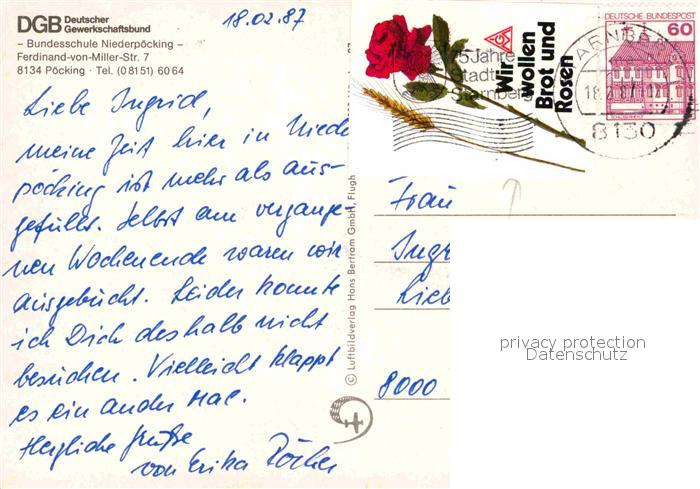 DGB Deutscher
Gewerkschaftsbund
– Bundesschule Niederpöcking –
Ferdinand-von-Miller-Str. 7
8134 Pöcking · Tel. (08151) 6064
18.02.87
Liebe Ingrid,
meine Zeit hier in Niede
pöcking ist mehr als aus-
gefüllt. Selbst am vergange-
nen Wochenende waren wir
ausgebucht. Leider konnte
ich Dich deshalb nicht
besuchen. Vielleicht klappt
es ein ander Mal.
Herzliche Grüße
von Erika
© Luftbildverlag Hans Bertram GmbH, Flugh
Wir
wollen
Brot und
Rosen
75 Jahre
Stadt
Starnberg
DEUTSCHE BUNDESPOST
60
8130
Frau
Ingr
Lieb
8000
privacy protection
Datenschutz